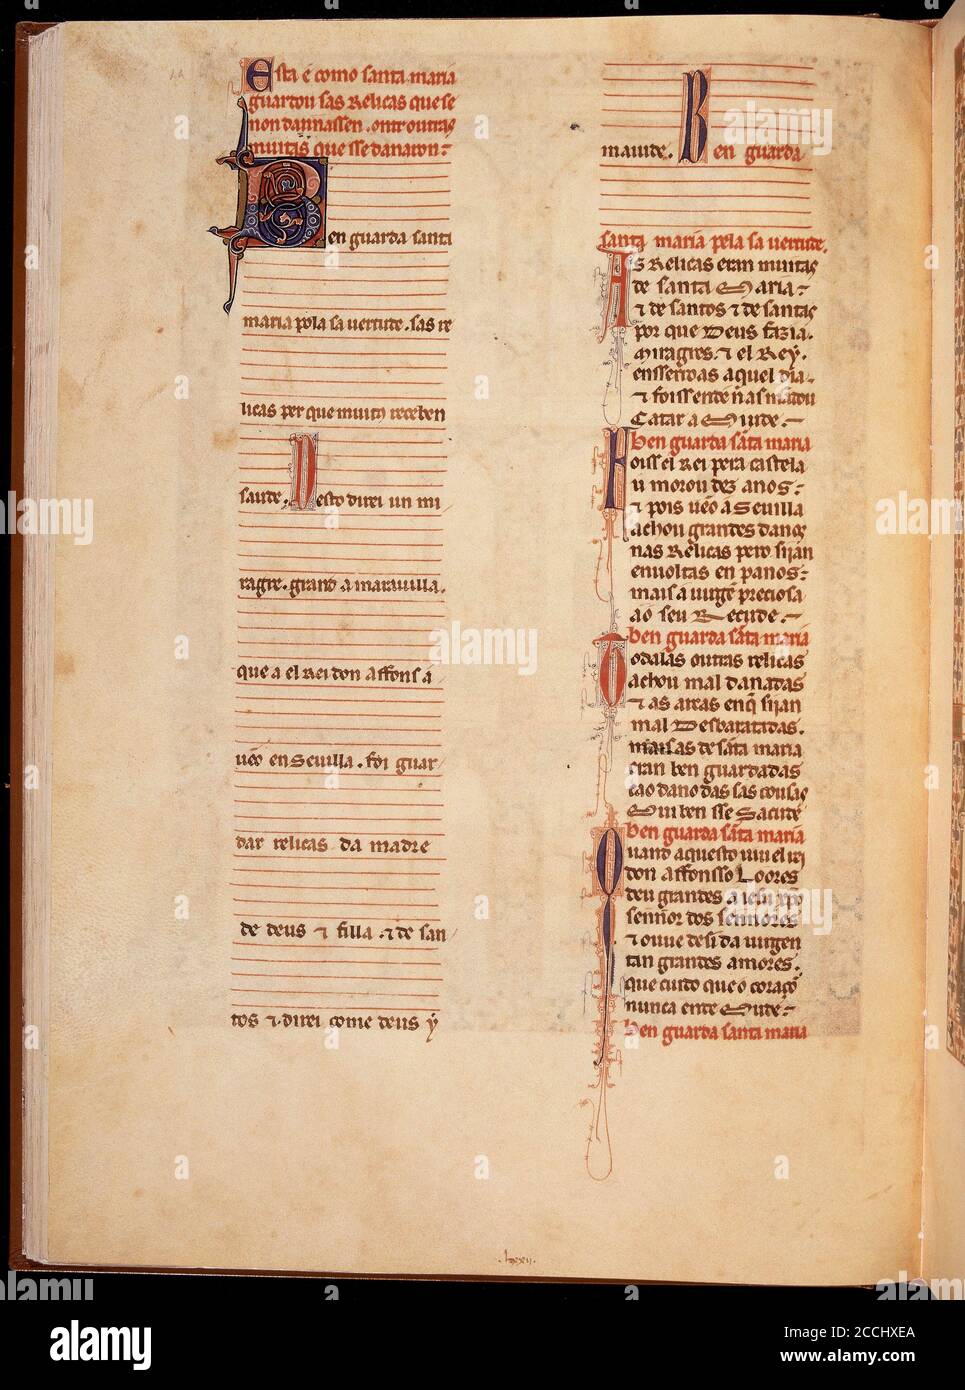 Esta é como santa maria
guardou sas Relicas que se
non dannassen. ontr outras
muitas que sse danaron:
Ben guarda santa
maria pola sa uertude. sas re
licas per que muito receben
saude. Desto direi un mi
ragre. grand a marauilla.
que a el Rei don affonss a
uẽo en Seuilla. foi guar
dar relicas da madre
de deus ⁊ filla. ⁊ de san
tos ⁊ direi come deus y
maude. Ben guarda
santa maria pela sa uertude.
As Relicas eran muitas
de santa Maria:
⁊ de santos ⁊ de santas
por que Deus fazia.
Miragres. ⁊ el Rey.
enssertoas aquel dia.
⁊ foisse
Catar a
Ben guarda sãta maria
Foisse el Rei pera castela
u morou dez anos:
⁊ pois uẽo a Seuilla
achou grandes danos
nas Relicas pero sijan
enuoltas en panos:
mais a uirgẽ preciosa
ao seu Recude:
Ben guarda sãta maria
Todalas outras relicas
achou mal danadas
⁊ as arcas enq̃ sijan
mal Desbaratadas.
mais as de sãta maria
eran ben guardadas
cao dano das sas cousas
Mui ben sse Sacude
Ben guarda sãta maria
Quand aquesto uiu el rei
don affonsso Loores
deu grandes a iesu xp̃o
sennor dos sennores
⁊ ouue desi da uirgen
tan grandes amores.
que cuido que o coraçõ
nunca ende Mude:
Ben guarda santa maria
.lxxij.
alamy
Image ID: 2CCHXEA
www.alamy.com